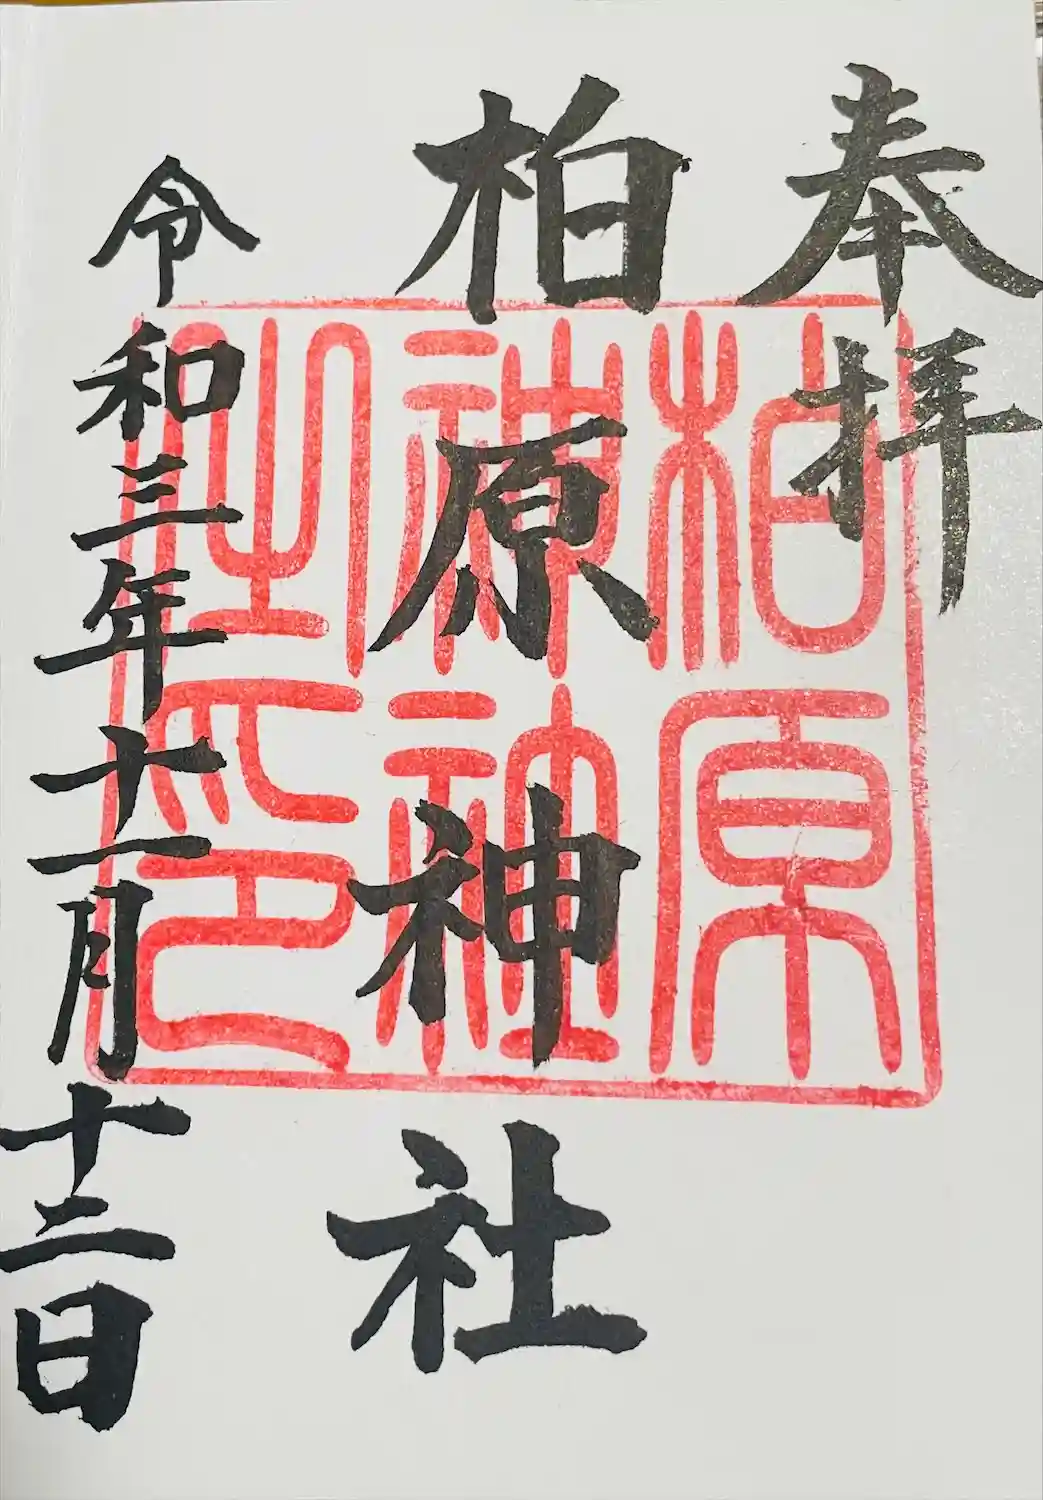 奉拝
柏原神社
令和三年十一月十二日
柏原
神社
之印